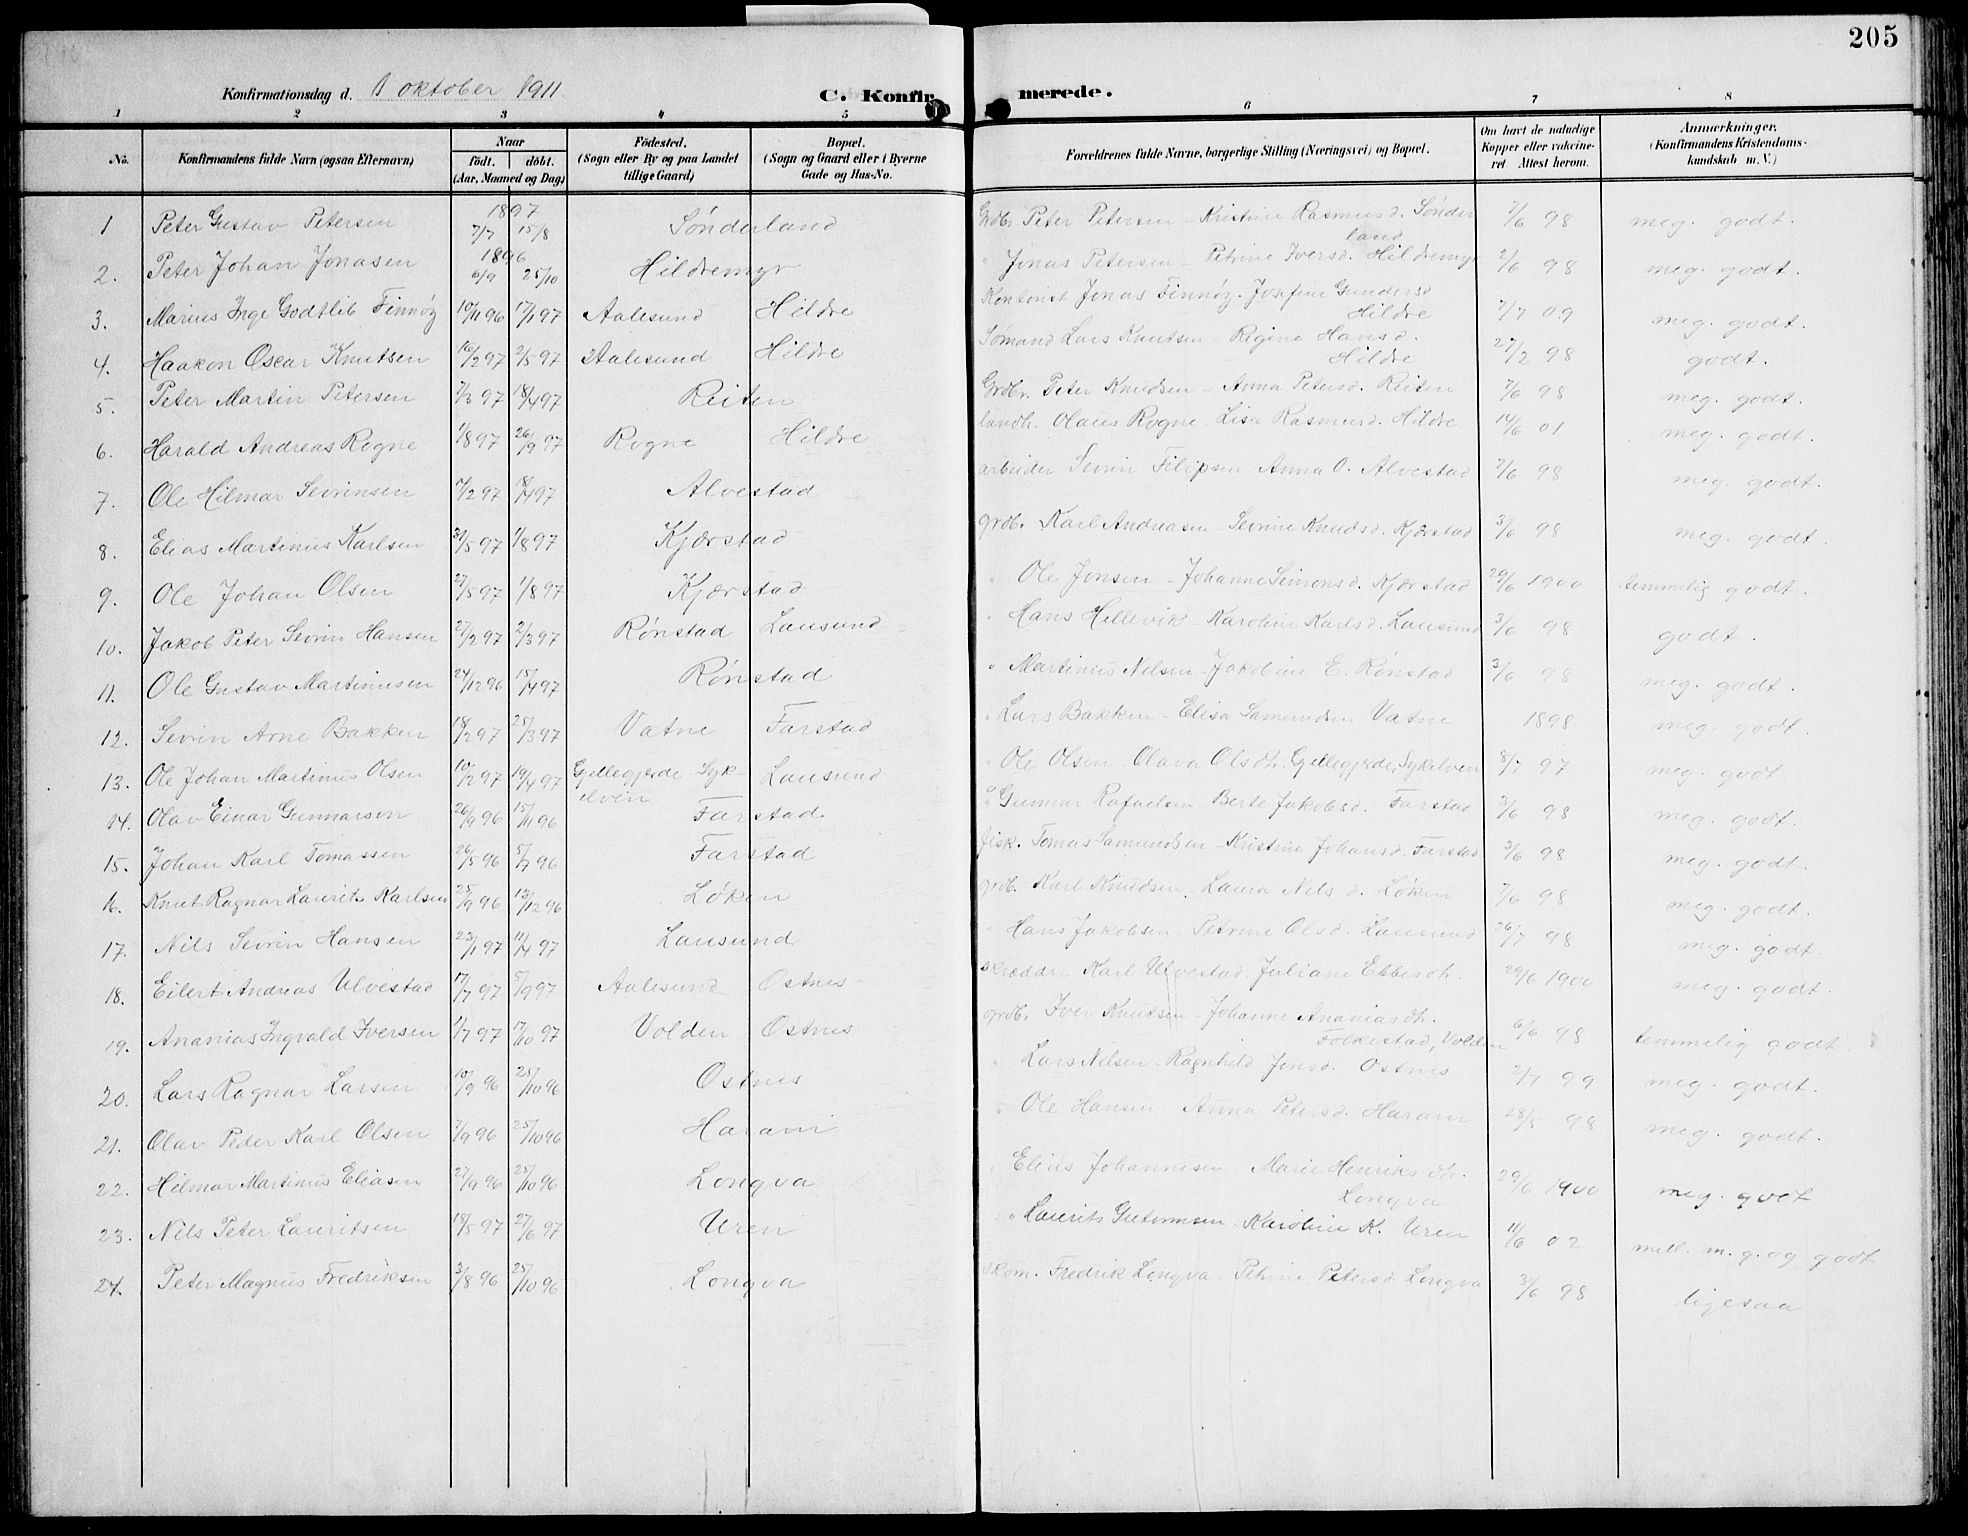 205
Konfirmationsdag d. 1 oktober 1911.
C. Konfirmerede.
1 2 3 4 5 6 7 8
No. Konfirmandens fulde Navn (ogsaa Efternavn) Naar født. døbt. (Aar, Maaned og Dag) Fødested. (Sogn eller By og paa Landet tillige Gaard) Bopæl. (Sogn og Gaard eller i Byerne Gade og Hus-No. Forældrenes fulde Navne, borgerlige Stilling (Næringsvei) og Bopæl. Om havt de naturlige Kopper eller vakcineret Attest herom. Anmærkninger. (Konfirmandens Kristendomskundskab m. V.)
1 Peter Gustav Petersen 1897 7/7 15/8 Sønderland Grdbr. Peter Petersen - Kristine Rasmusd. Sønderland 7/6 98 meg. godt.
2. Peter Johan Jonasen 1896 6/9 25/10 Hildremyr " Jonas Petersen - Petrine Iversd. Hildremyr 2/6 98 meg. godt.
3. Marius Inge Godtlib Finnøy 10/11 96 17/1 97 Aalesund Hildre Kontorist Jonas Finnøy - Josefine Gundersd Hildre 7/7 09 meg. godt.
4. Haakon Oscar Knutsen 16/2 97 2/5 97 Aalesund Hildre Sømand Lars Knutsen - Regine Hansd. Hildre 27/2 98 godt.
5. Peter Martin Petersen 7/3 97 18/4 97 Reiten Grdbr. Peter Knudsen - Anna Petersd. Reiten 7/6 98 meg. godt.
6. Harald Andreas Rogne 1/8 97 26/9 97 Rogne Hildre landh. Olaus Rogne - Lisa Rasmusd. Hildre 14/6 01 meg. godt.
7. Ole Hilmar Sevrinsen 4/2 97 18/4 97 Alvestad arbeider Sevrin Filipsen Anna O. Alvestad 7/6 98 meg. godt.
8. Elias Martinus Karlsen 31/5 97 1/8 97 Kjærstad grdb. Karl Andreasen - Sevrine Knudsd. Kjærstad 3/6 98 meg. godt.
9. Ole Johan Olsen 27/5 97 1/8 97 Kjærstad " Ole Jonsen - Johanne Simonsd. Kjærstad 29/6 1900 temmelig godt.
10. Jakob Peter Sevrin Hansen 27/2 97 2/3 97 Rønstad Lausund " Hans Hellevik - Karoline Karlsd. Lausund 3/6 98 godt.
11. Ole Gustav Martinusen 24/12 96 15/4 97 Rønstad " Martinus Nilsen - Jakobine E. Rønstad 3/6 98 meg. godt.
12. Sevrin Arne Bakken 18/2 97 25/3 97 Vatne Farstad " Lars Bakken - Elisa Samundsen Vatne 1898 meg. godt.
13. Ole Johan Martinus Olsen 10/2 97 19/4 97 Gjellegjerde Sykelven Lausund " Ole Olsen - Olava Olsdtr. Gjellegjerde, Sykelven 8/7 97 meg. godt
14. Olav Einar Gunnarson 26/9 96 15/11 96 Farstad " Gunnar Rafaelsen - Berte Jakobsd. Farstad 3/6 98 meg. godt.
15. Johan Karl Tomassen 26/5 96 5/7 96 Farstad fisk. Tomas Samundsen - Kristine Johansd. Farstad 3/6 98 meg. godt.
16. Knut Ragnar Laurits Karlsen 25/9 96 13/12 96 Løken grdb. Karl Knudsen - Laura Nilsd. Løken 7/6 98 meg. godt.
17. Nils Sevrin Hansen 23/1 97 11/4 97 Lausund " Hans Jakobsen - Petrine Olsd. Lausund 26/7 98 meg. godt.
18. Eilert Andreas Ulvestad 17/7 97 5/9 97 Aalesund Ostnes skrædder Karl Ulvestad. Juliane Ebbesdtr. 29/6 1900 meg. godt.
19. Ananias Ingvald Iversen 1/7 97 17/10 97 Volden Ostnes grdb. Iver Knutsen - Johanne Ananiasdtr. Folkestad, Volden 6/6 98 temmelig godt.
20. Lars Ragnar Larsen 10/9 96 25/10 96 Ostnes " Lars Nilsen - Ragnhild Jonsd. Ostnes 2/7 99 meg. godt.
21. Olav Peder Karl Olsen 7/9 96 25/10 96 Haram " Ole Hansen - Anna Petersd. Haram 28/5 98 meg. godt.
22. Hilmar Martinus Eliasen 27/9 96 25/10 96 Longva " Elias Johannesen - Marie Henriksdtr. Longva 29/6 1900 meg. godt
23. Nils Peter Lauritsen 18/5 97 27/6 97 Uren " Laurits Gutormsen - Karoline K. Uren 11/6 02 mell. m. g. og godt
24. Peter Magnus Fredriksen 3/8 96 25/10 96 Longva skom. Fredrik Longva - Petrine Petersd. Longva 3/6 98 ligesaa